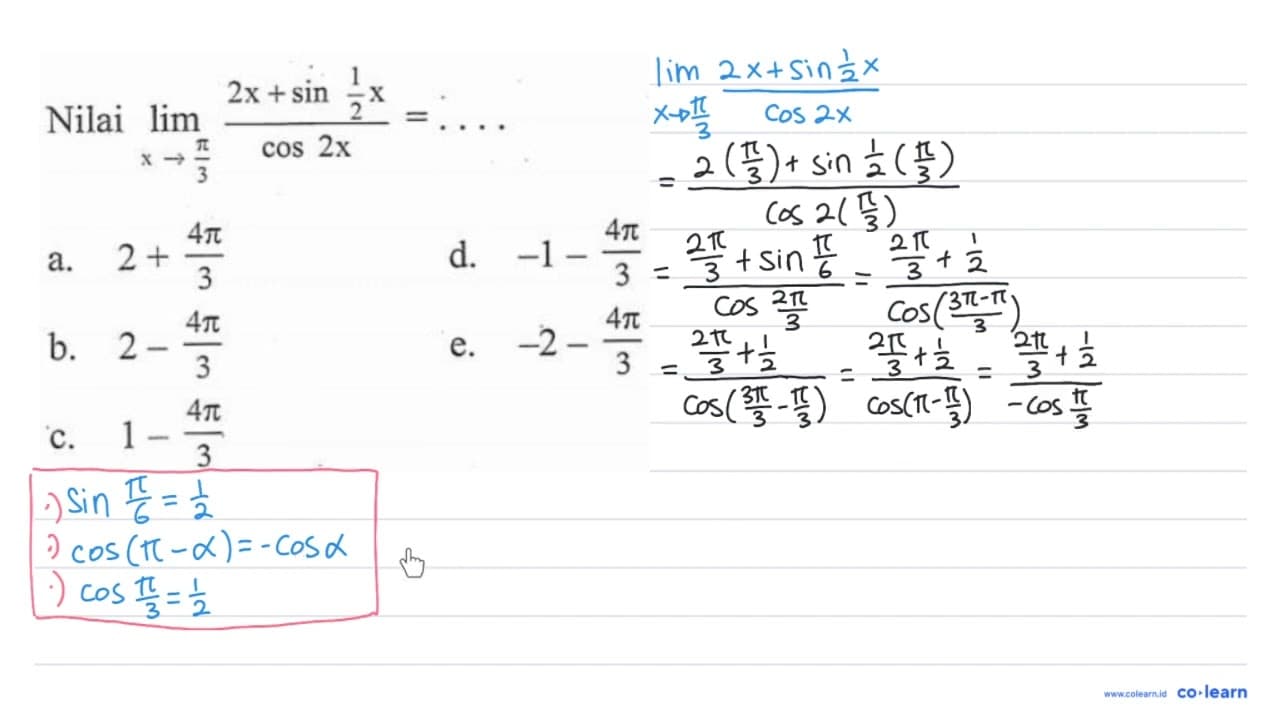 Nilai lim x → π/3 (2x + sin 1/2 x)/(cos 2x) = . . . .
a. 2 + 4π/3
b. 2 − 4π/3
c. 1 − 4π/3
d. −1 − 4π/3
e. −2 − 4π/3
lim x→π/3 (2x + sin 1/2 x)/(cos 2x)
= (2(π/3) + sin 1/2 (π/3))/(cos 2(π/3))
= (2π/3 + sin π/6)/(cos 2π/3) = (2π/3 + 1/2)/(cos((3π−π)/3))
= (2π/3 + 1/2)/(cos(3π/3 − π/3)) = (2π/3 + 1/2)/(cos(π − π/3)) = (2π/3 + 1/2)/(−cos π/3)
·) sin π/6 = 1/2
·) cos(π − α) = −cos α
·) cos π/3 = 1/2
www.colearn.id co·learn